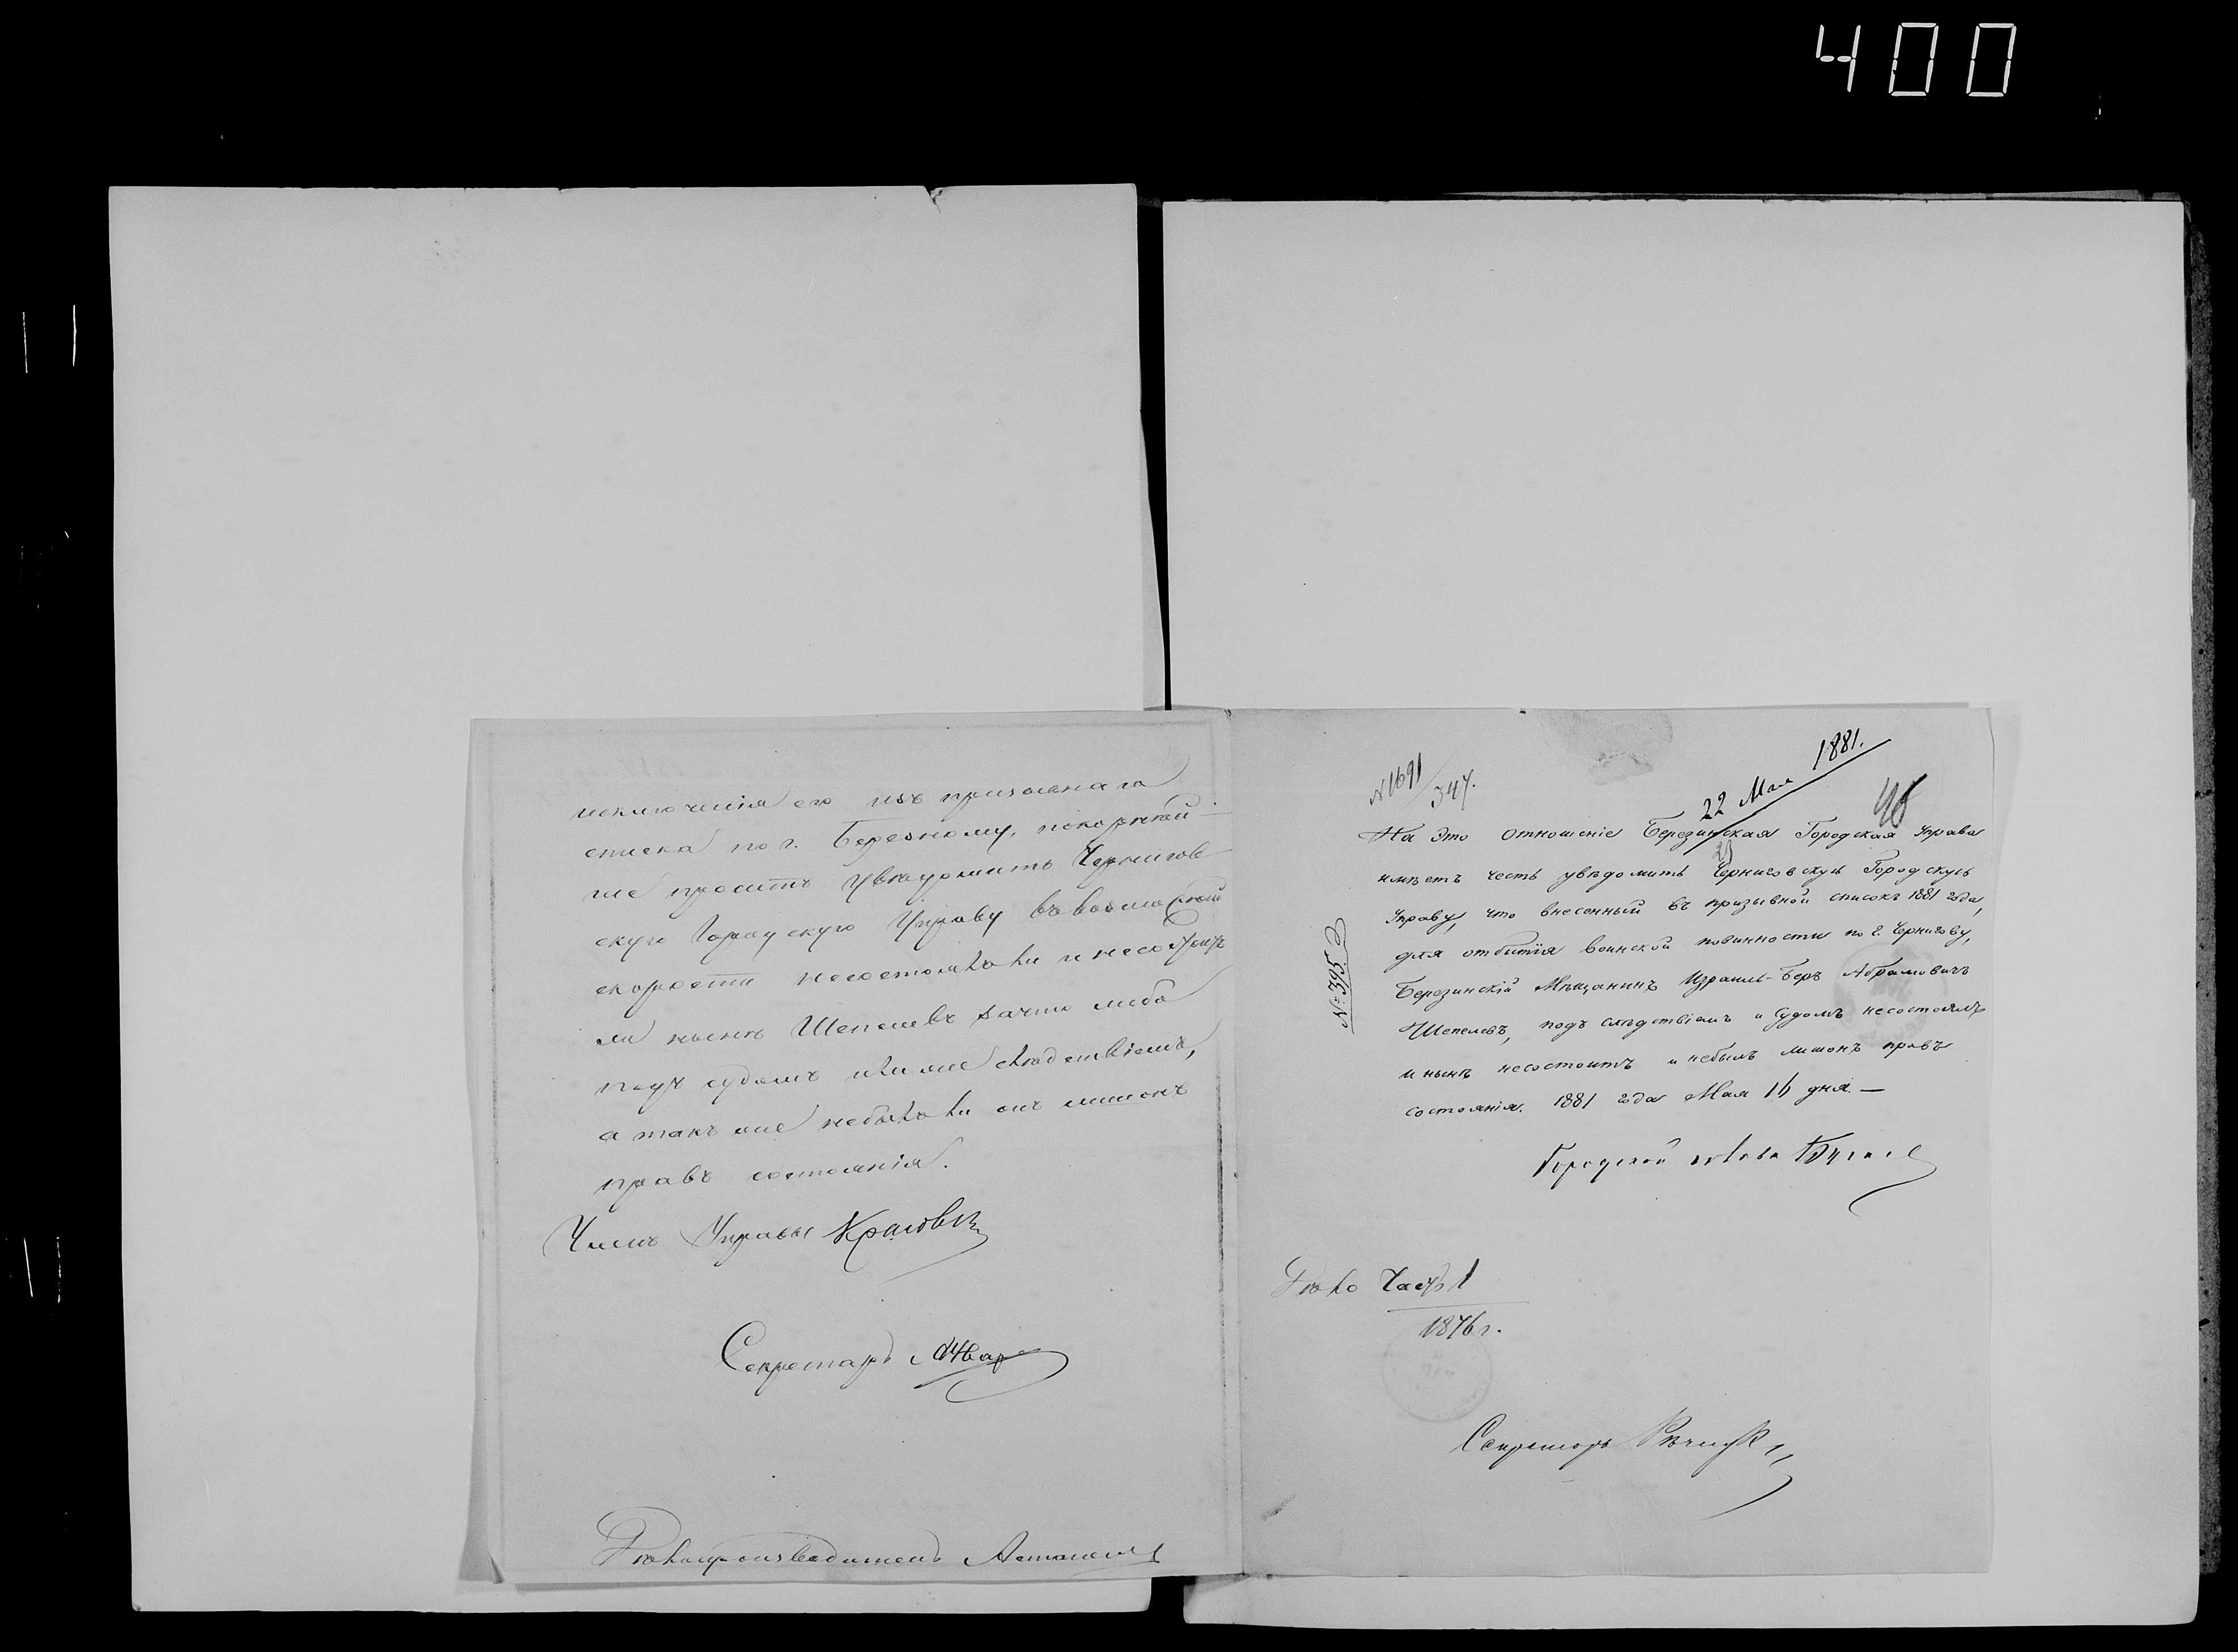 400
исключенія его изъ призывнаго
списка по г. Березному, покорнѣй-
ше проситъ увѣдомить Чернигов-
скую Городскую Управу въ возможной
скорости несостоялъ ли и несостоитъ
ли нынѣ Шепелевъ зачто либо
подъ судомъ или же слѣдствіемъ,
а такъ же небылъ ли онъ лишонъ
правъ состоянія.
Членъ Управы
Секретарь
Дѣлопроизводитель
1881.
22 Мая
№ 1691
347.
На это отношеніе Березинская Городская Управа
имѣетъ честь увѣдомить Черниговскую Городскую
Управу, что внесенный въ призывной списокъ 1881 года,
для отбытія воинской повинности по г. Чернигову,
Березинскій Мѣщанинъ Израиль-Беръ Абрамовичъ
Шепелевъ, подъ слѣдствіемъ и судомъ несостоялъ
и нынѣ несостоитъ и небылъ лишонъ правъ
состоянія. 1881 года Мая 16 дня.—
№ 395
Городской голова
Дѣло Часть 1
1876 г.
Секретарь